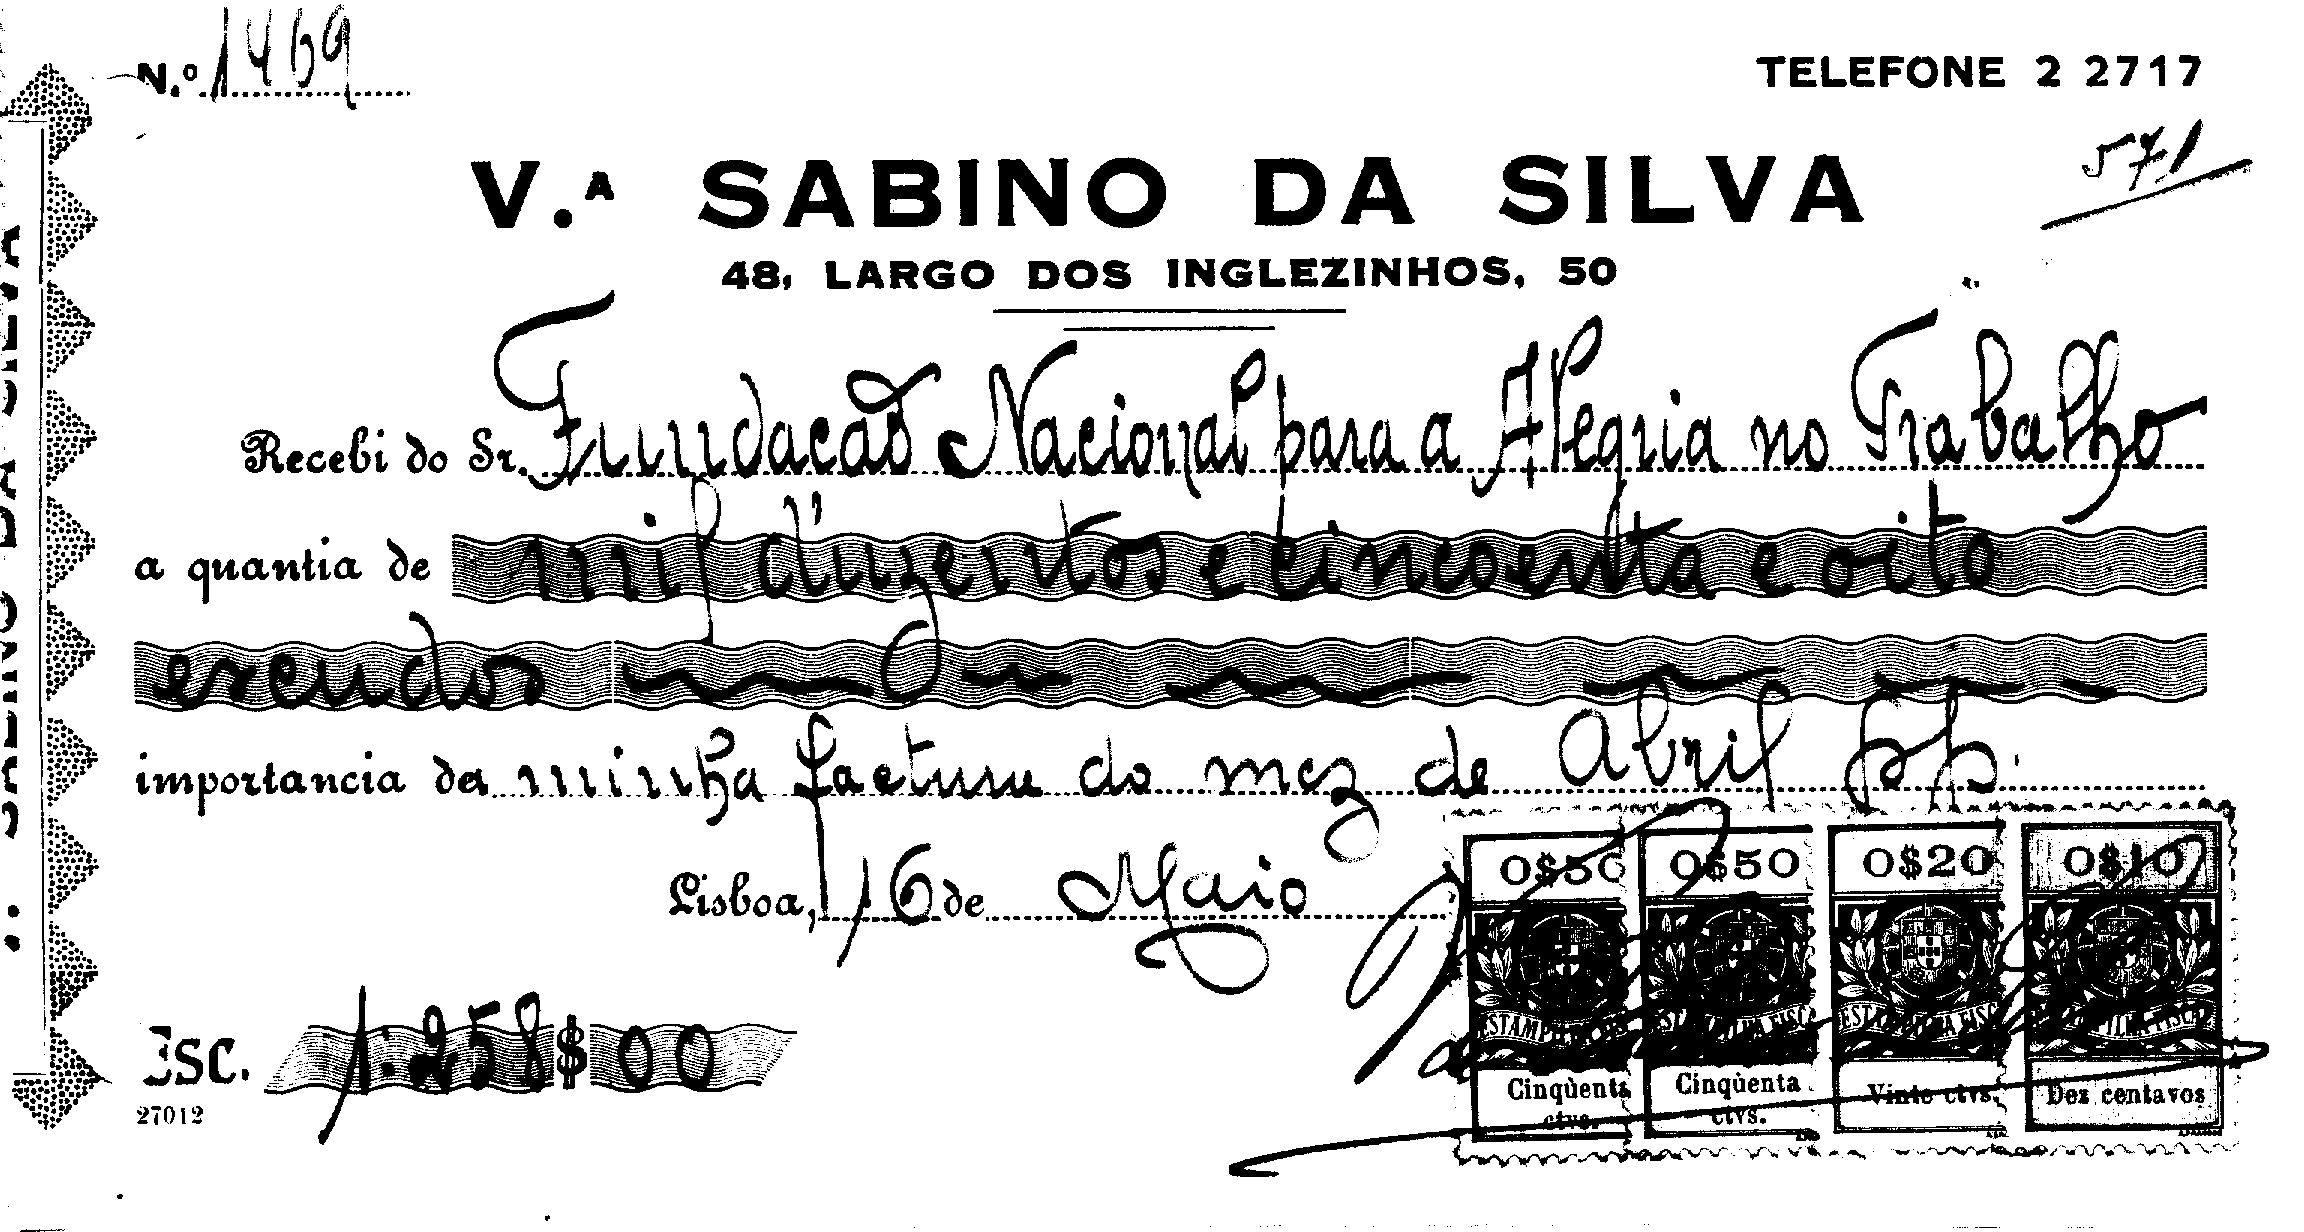 N.º 1469
TELEFONE 2 2717
571
V.ᴬ SABINO DA SILVA
48, LARGO DOS INGLEZINHOS, 50
Recebi do Sr. Fundação Nacional para a Alegria no Trabalho
a quantia de mil duzentos e cincoenta e oito
escudos
importancia da minha factura do mez de Abril pp.
Lisboa, 16 de Maio
ESC. 1.258$00
27012
0$50 0$50 0$20 0$10
ESTAMPILHA FISCAL ESTAMPILHA FISCAL ESTAMPILHA FISCAL ESTAMPILHA FISCAL
Cinqùenta ctvs. Cinqùenta ctvs. Vinte ctvs. Dez centavos